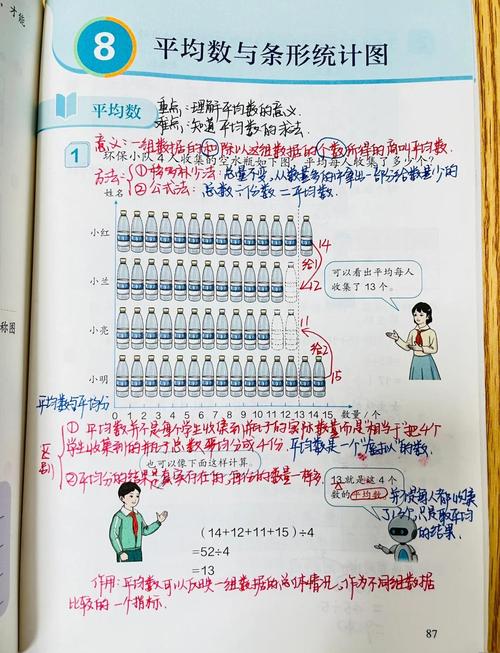 才能
8 平均数与条形统计图
平均数
重点:理解平均数的意义.
难点:知道平均数的求法.
意义:一组数据的和除以这组数据的个数所得的商叫平均数.
1 环保小队4人收集的空水瓶如下图,平均每人收集了多少个?
方法:①移多补少法:总量不变,从数量多的中拿出一部分给数量少的
②公式法:总数÷份数=平均数.
姓名
小红
14
给1
小兰
12
可以看出平均每人
收集了 13 个。
小亮
11
给2
小明
15
0 1 2 3 4 5 6 7 8 9 10 11 12 13 14 15 数量/个
平均数与平均分
区别
①平均数并不是每个学生收集到瓶子的实际数量而是相当于把4个
学生收集到的瓶子总数平均分成4份.平均数是一个"虚拟"的数.
也可以像下面这样计算。
②平均分的结果是真实存在的,每份的数量一样多.
13 就是这 4 个
数的平均数。
并不是每人都收集
了13个,只是取平均
的结果.
(14+12+11+15)÷4
=52÷4
=13
作用:平均数可以反映一组数据的总体情况,作为不同组数据
比较的一个指标.
称图
87